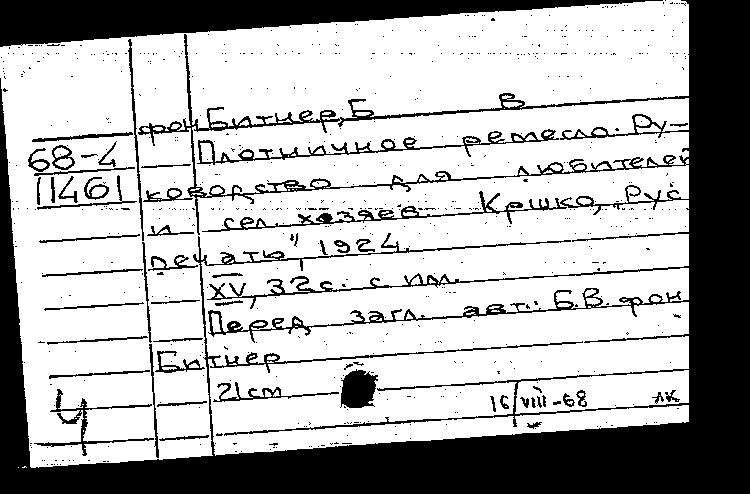 фон Битнер, Б В
68-4 Плотничное ремесло. Ру-
11461 ководство для любителей
и сел. хозяев. Кршко, „Рус
печатю", 1924.
XV, 32 с. с илл.
Перед загл. авт.: Б.В. фон
Битнер
21 cm
Ч 16/VIII-68 ЛК